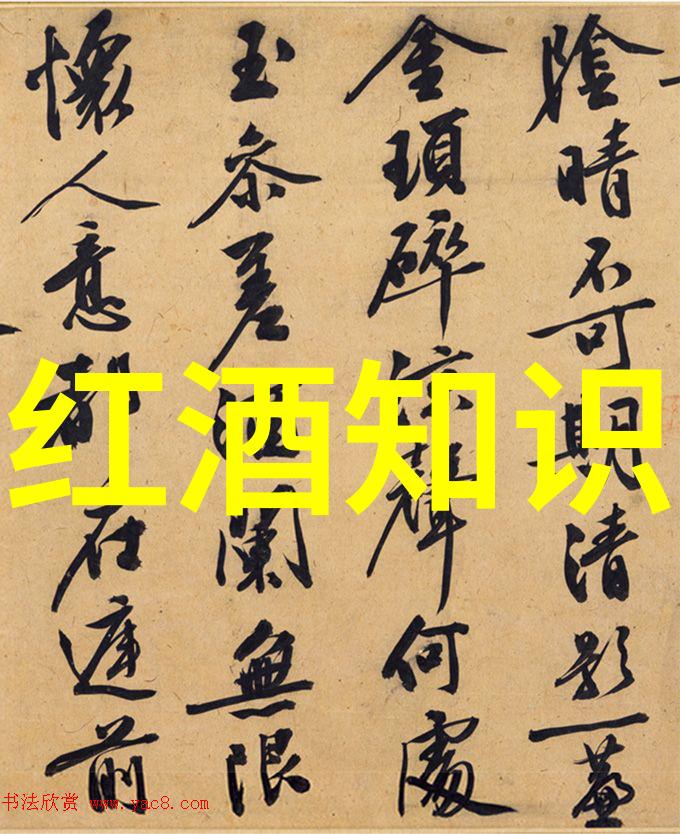 陰晴不可期清影一簾
金瑣碎涼聲何處
玉參差酒闌無限
懷人意都在庭前
红酒知识
书法欣赏 www.yac8.com